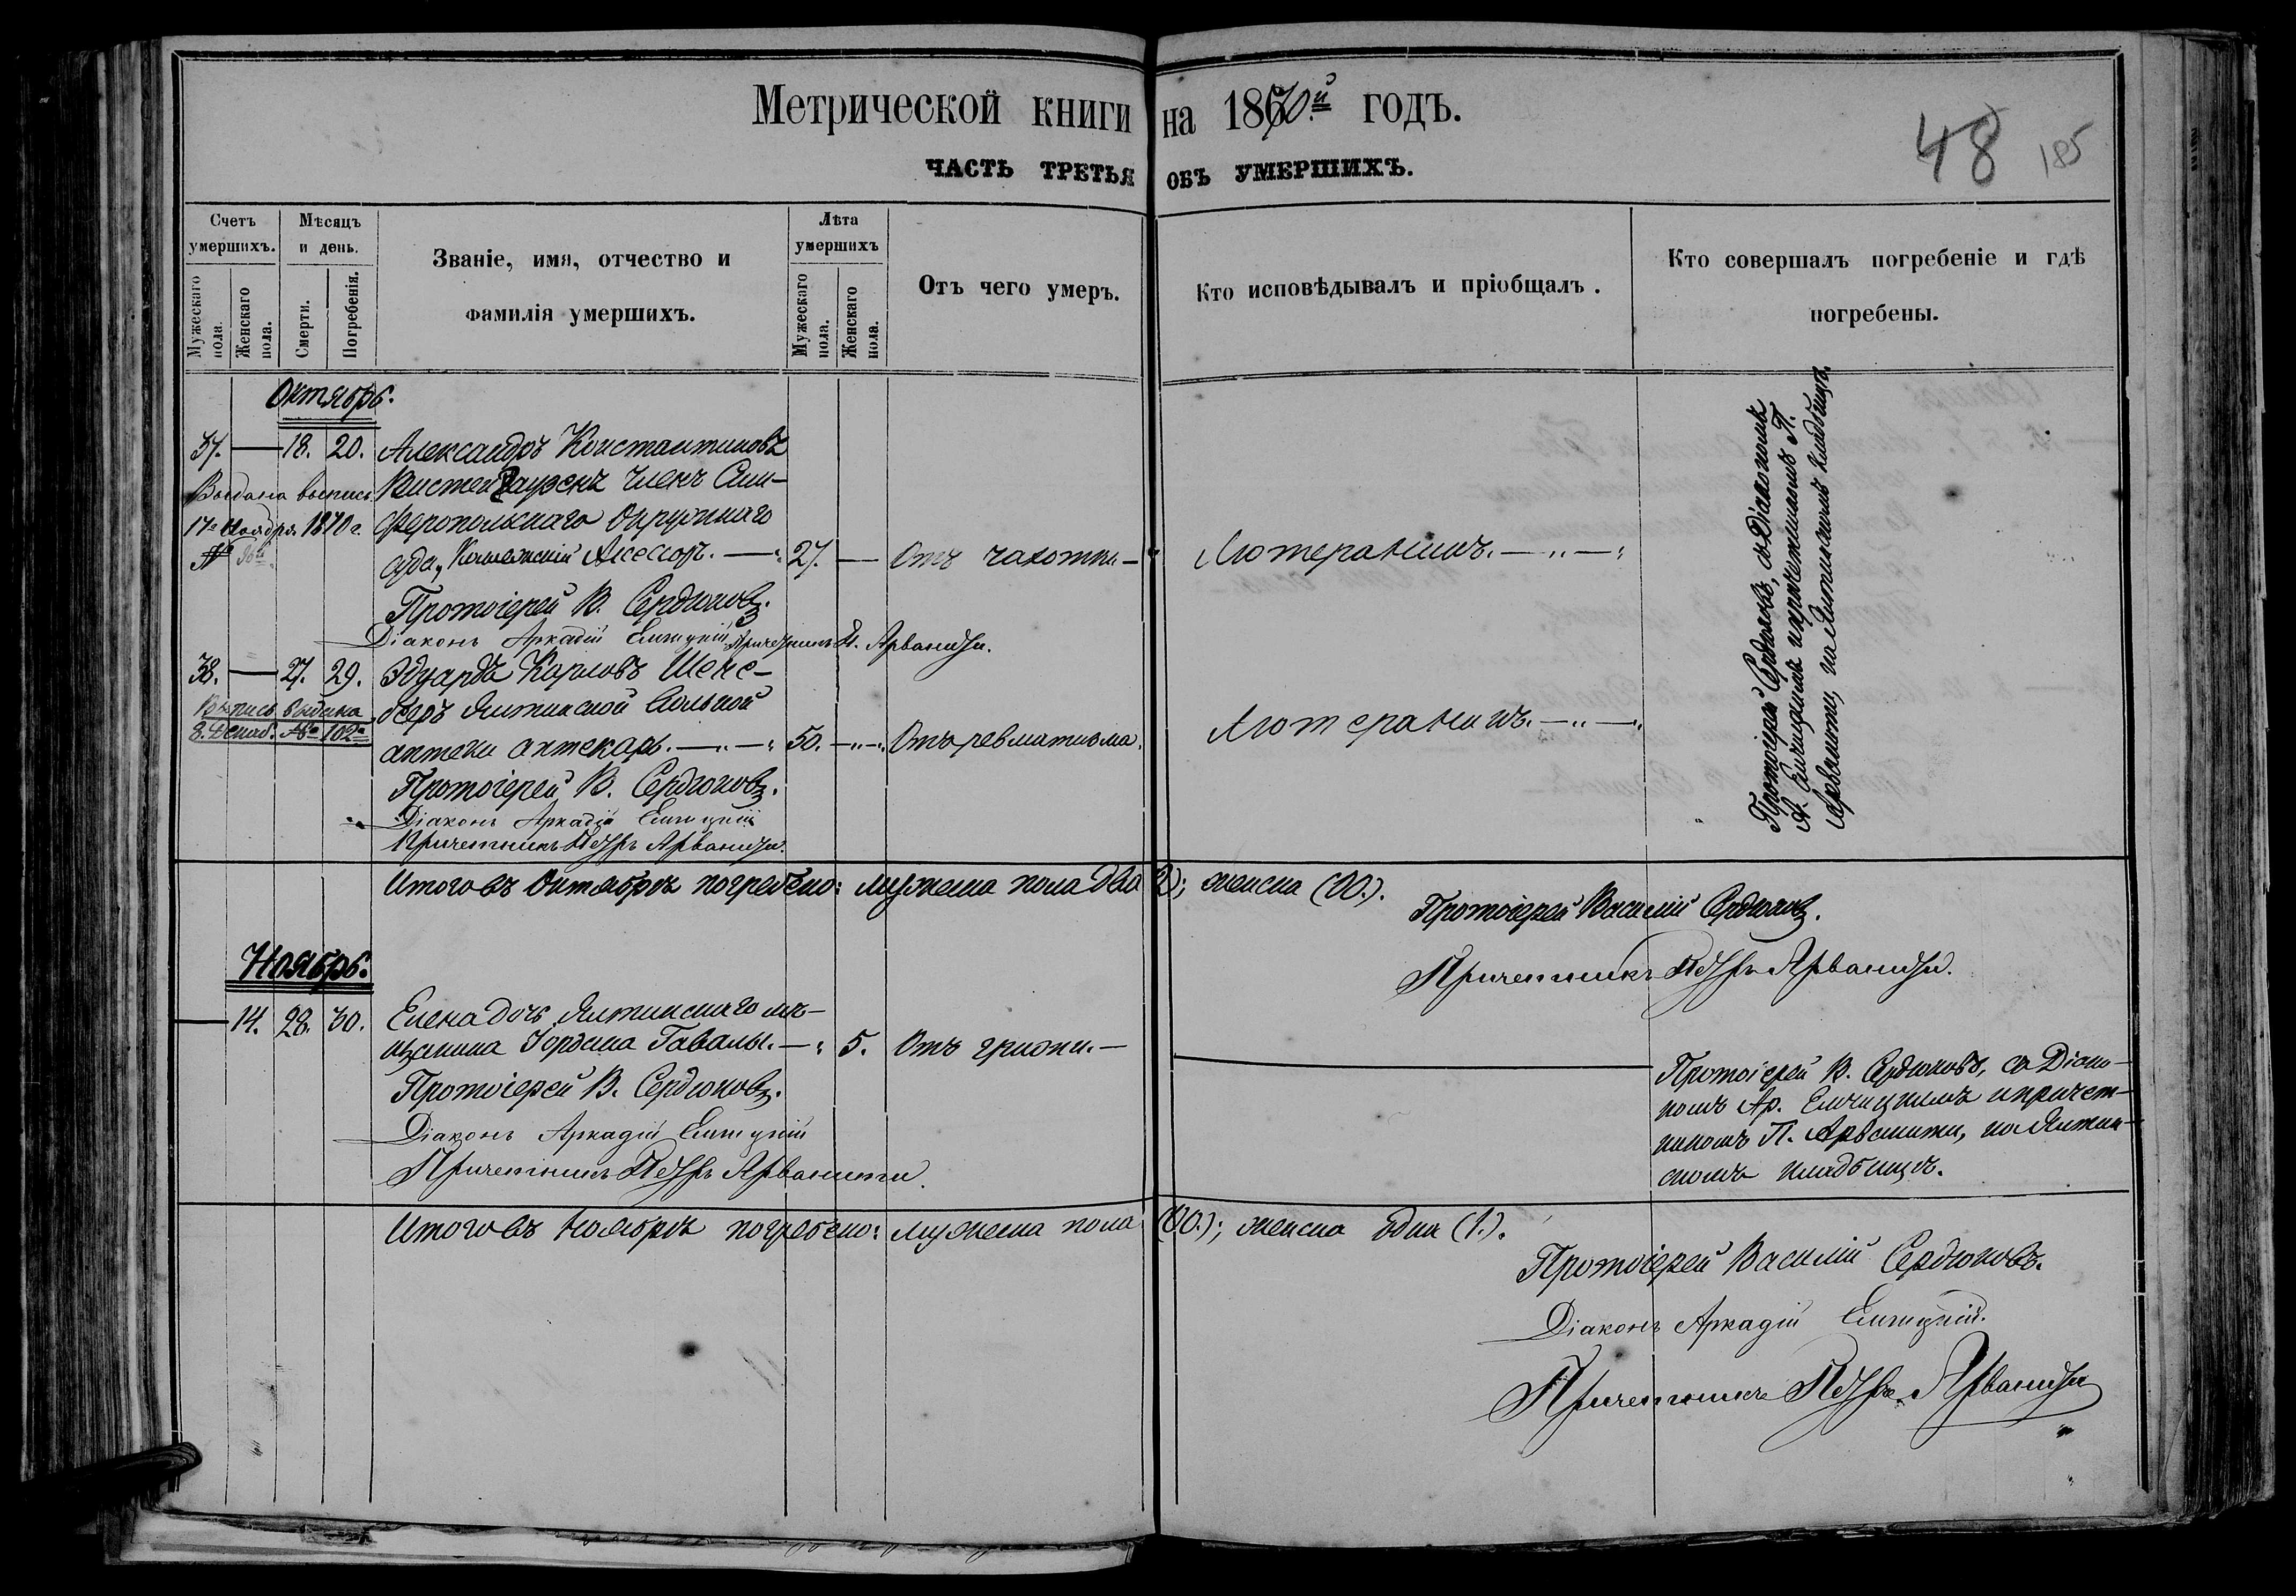 Метрической книги на 1870.й годъ.
48 185
ЧАСТЬ ТРЕТЬЯ ОБЪ УМЕРШИХЪ.
Счетъ умершихъ.
Мужескаго пола.
Женскаго пола.
Мѣсяцъ и день.
Смерти.
Погребенія.
Званіе, имя, отчество и
фамилія умершихъ.
Лѣта умершихъ
Мужескаго пола.
Женскаго пола.
Отъ чего умеръ.
Кто исповѣдывалъ и пріобщалъ.
Кто совершалъ погребеніе и гдѣ
погребены.
Октябрь.
37. — 18. 20. Александръ Константиновъ
Выдана выпись
членъ Сим-
17го Ноября 1870 г.
феропольскаго Окружнаго
№
суда, Коллежскій Асессоръ. — 27. — Отъ чахотки — Лютеранинъ. — „ —
Протоіерей В. Сердюковъ.
Діаконъ Аркадій Причетникъ П. Арванити.
38. — 27. 29. Эдуардъ Карловъ Шене-
Выпись выдана
8. Декаб. № 102
беръ Ялтинской вольной
аптеки аптекарь. — „ — 50. — „ — Отъ ревматизма. Лютеранинъ. — „ —
Протоіерей В. Сердюковъ.
Діаконъ Аркадій
Причетникъ Петръ Арванити.
Протоіерей Сердюковъ, съ Діакономъ
А. и причетникомъ П.
Арванити, на Ялтинскомъ кладбищѣ.
Итого въ Октябрѣ погребено: мужеска пола два (2); женска (00.).
Протоіерей Василій Сердюковъ.
Причетникъ Петръ Арванити.
Ноябрь.
— 14. 28. 30. Елена дочь Ялтинскаго мѣ-
щанина Іордана Гавалы. — 5. Отъ грижи. —
Протоіерей В. Сердюковъ.
Діаконъ Аркадій
Причетникъ Петръ Арванити.
Протоіерей В. Сердюковъ, съ Діако-
номъ Ар. и причет-
никомъ П. Арванити, на Ялтин-
скомъ кладбищѣ.
Итого въ Ноябрѣ погребено: мужеска пола (00.); женска одна (1.).
Протоіерей Василій Сердюковъ.
Діаконъ Аркадій
Причетникъ Петръ Арванити